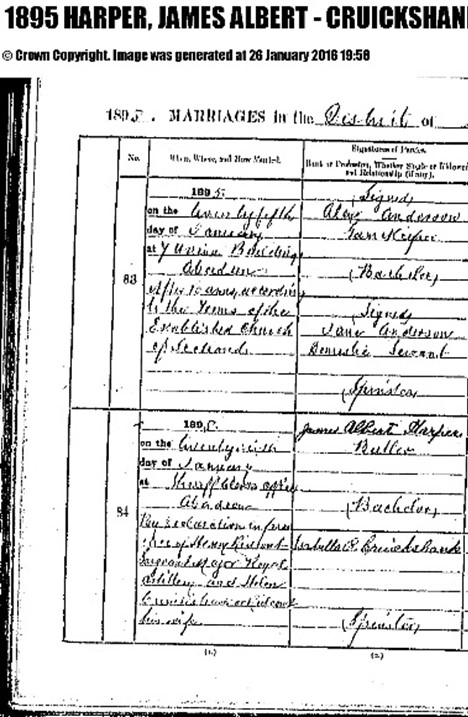 1895 HARPER, JAMES ALBERT - CRUICKSHAN
© Crown Copyright. Image was generated at 26 January 2016 19:58
1895. MARRIAGES in the District of
No.
When, Where, and How Married.
Signatures of Parties.
Rank or Profession, Whether Single or Widowed, and Relationship (if any).
83
1895,
on the twenty fifth
day of January
at 7 Union Buildings
Aberdeen
After Banns, according
to the Forms of the
Established Church
of Scotland
Signed
Anderson
(Bachelor)
Signed
Jane Anderson
Domestic Servant
(Spinster)
84
1895,
on the
day of January
at Sheriff Clerk's Office
Aberdeen
By Declaration in pres
ence of Henry
Sergeant Major Royal
Artillery and Helen
his wife
James Albert Harper
Butler
(Bachelor)
Isabella Cruickshank
(Spinster)
(1.)
(2.)